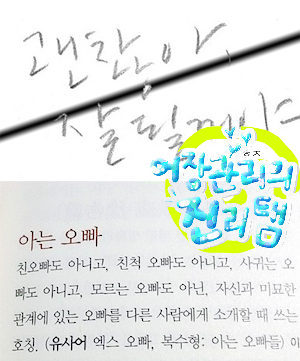 괜찮아,
잘 될꺼야
어장관리의
진리탬
아는 오빠
친오빠도 아니고, 친척 오빠도 아니고, 사귀는 오
빠도 아니고, 모르는 오빠도 아닌, 자신과 미묘한
관계에 있는 오빠를 다른 사람에게 소개할 때 쓰는
호칭. (유사어 엑스 오빠, 복수형: 아는 오빠들)